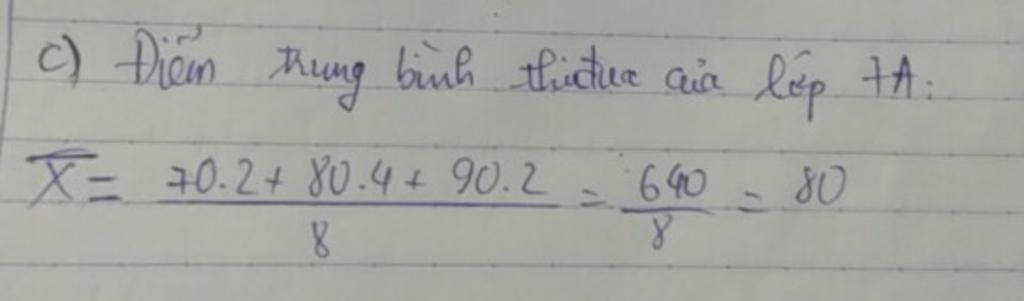 c) Điểm trung bình thi đua của lớp 7A:
X̄ = 70.2 + 80.4 + 90.2 / 8 = 640 / 8 = 80